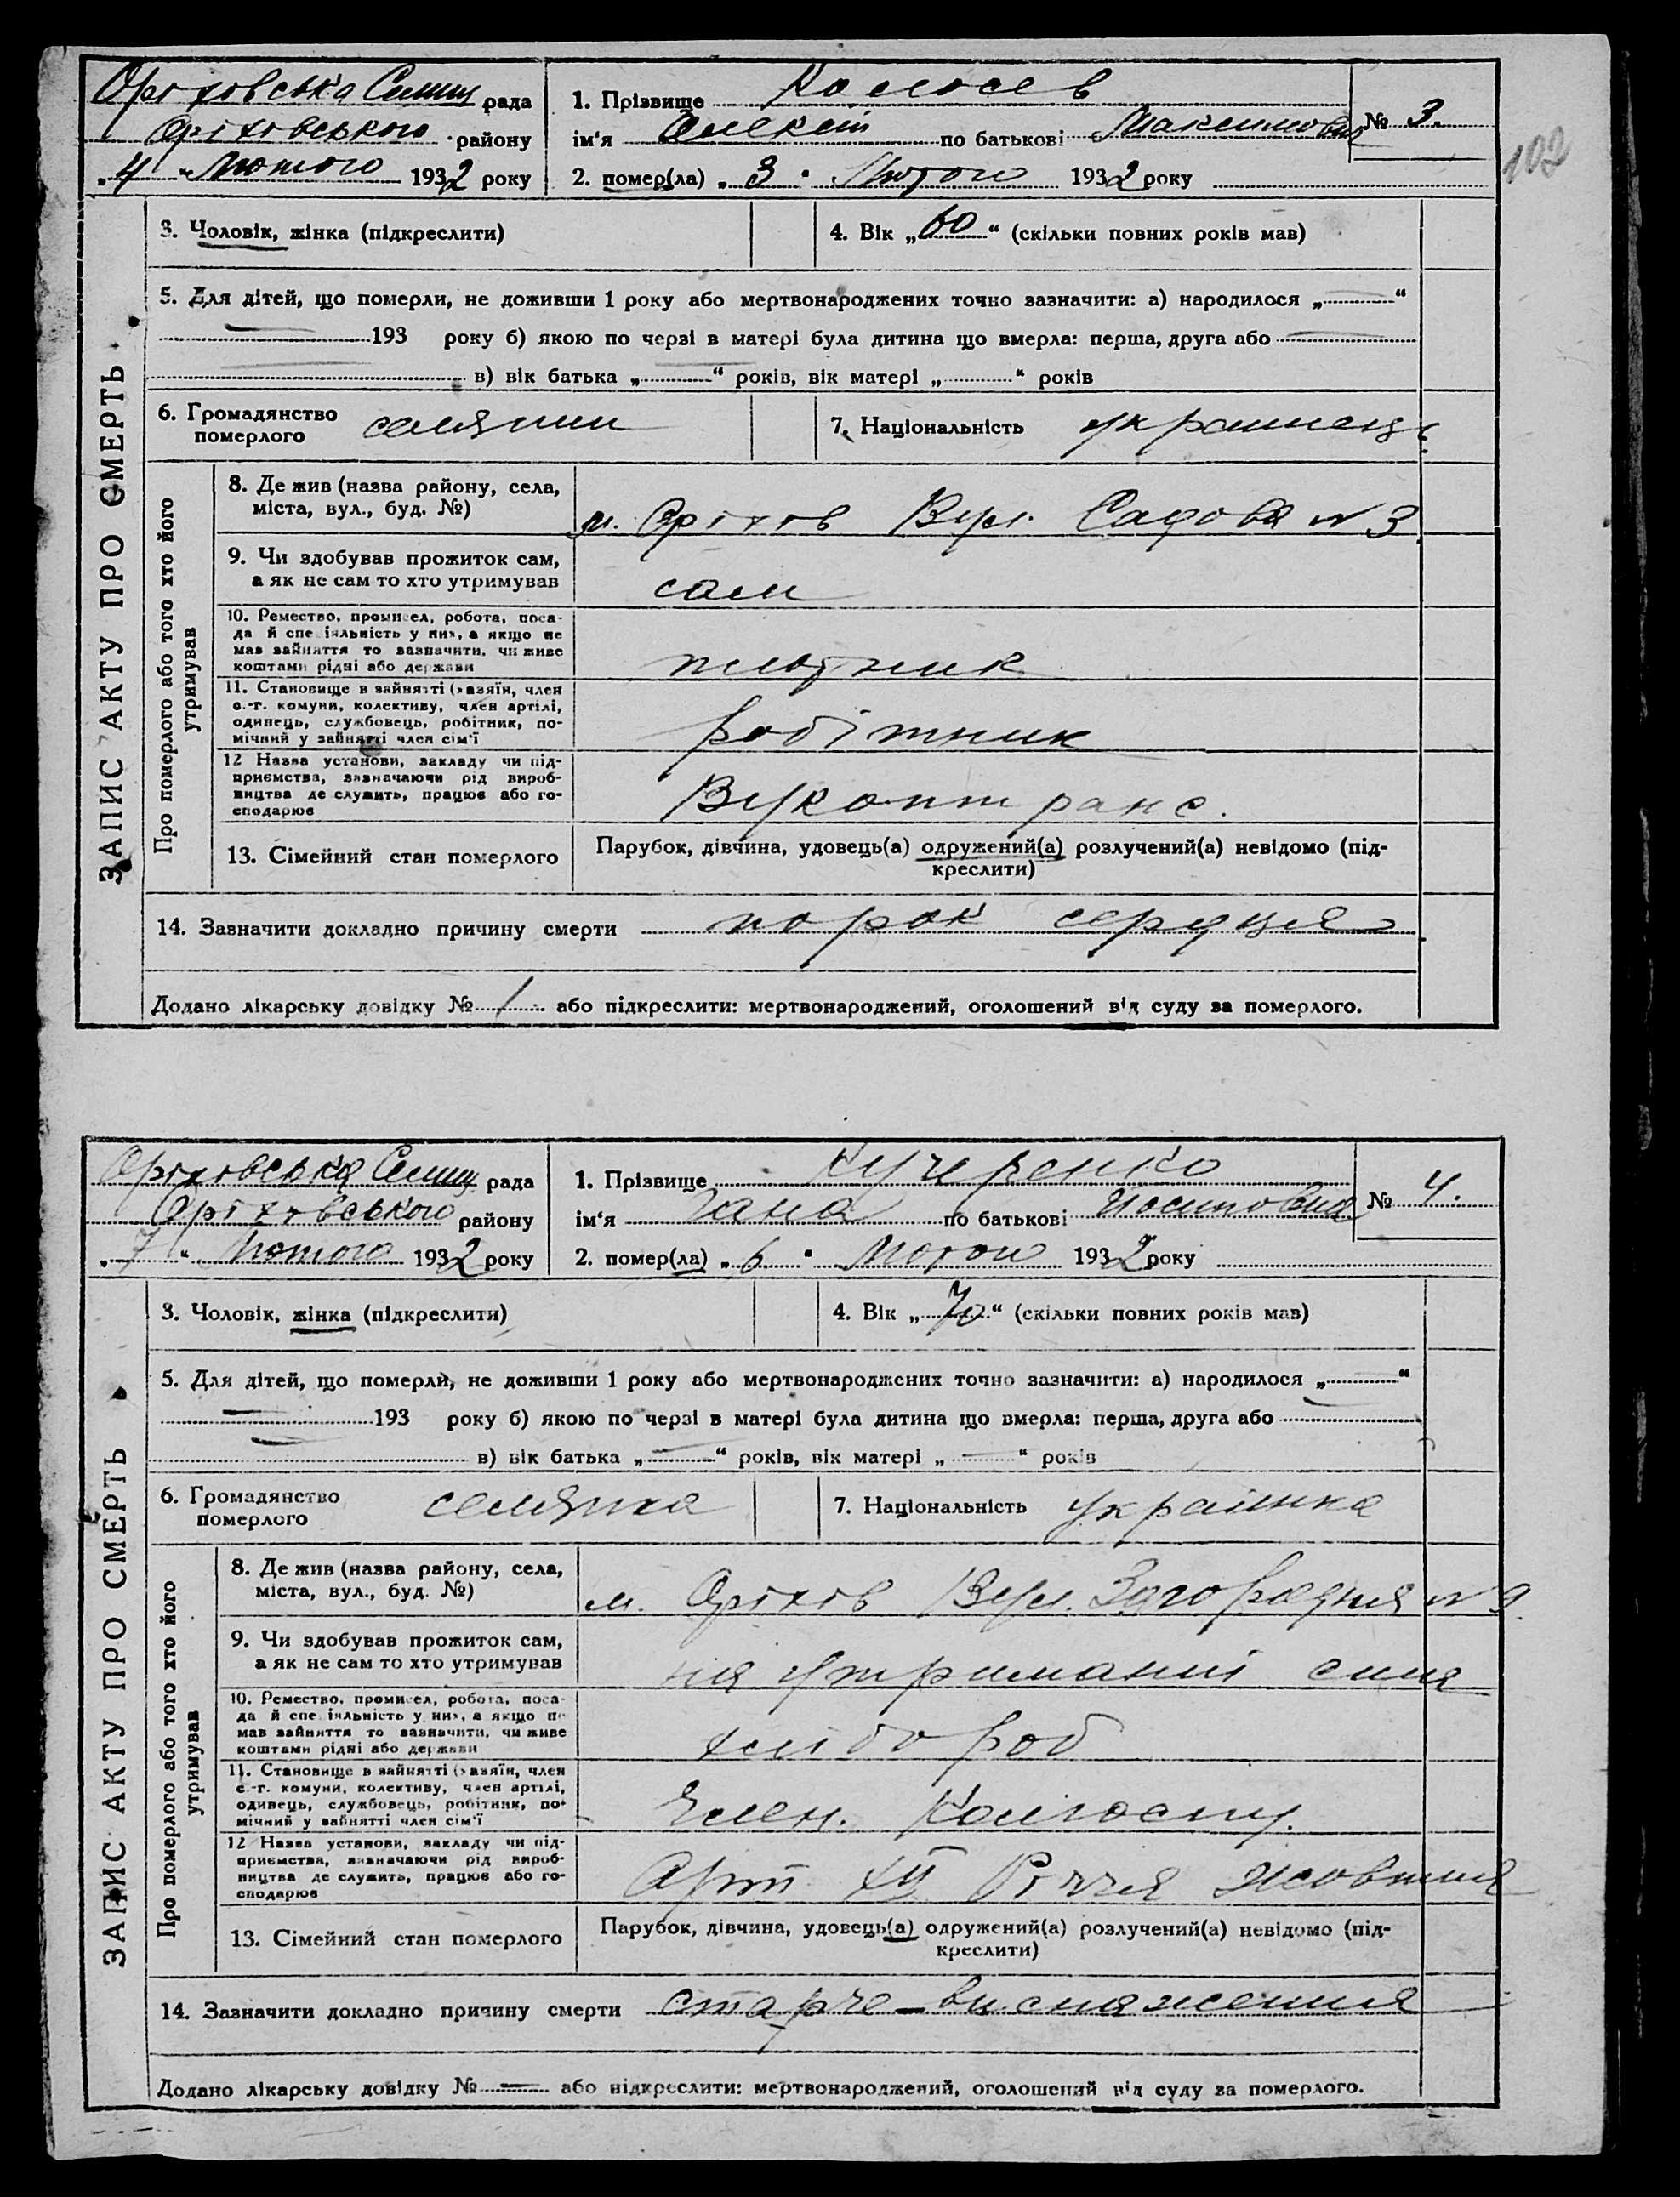 Оріховська Селищ рада
Оріховського району
„4“ Лютого 1932 року
1. Прізвище Колосєв
ім'я Олексій по батькові Максимович
№ 3.
102
2. помер(ла) „3“ Лютого 1932 року
3. Чоловік, жінка (підкреслити)
4. Вік „60“ (скільки повних років мав)
5. Для дітей, що померли, не доживши 1 року або мертвонароджених точно зазначити: а) народилося „—“
— 193 року б) якою по черзі в матері була дитина що вмерла: перша, друга або —
— в) вік батька „—“ років, вік матері „“ років
6. Громадянство
померлого
селянин
7. Національність українець
ЗАПИС АКТУ ПРО СМЕРТЬ
Про померлого або того хто його
утримував
8. Де жив (назва району, села,
міста, вул., буд. №)
м. Оріхів Вул. Садова № 3
9. Чи здобував прожиток сам,
а як не сам то хто утримував
сам
10. Ремество, промисел, робота, поса-
да й спеціяльність у них, а якщо не
мав зайняття то зазначити, чи живе
коштами рідні або держави
плотник
11. Становище в зайнятті (хазяїн, член
с.-г. комуни, колективу, член артілі,
одинець, службовець, робітник, по-
мічний у зайнятті член сім'ї
робітник
12 Назва установи, закладу чи під-
приємства, зазначаючи рід вироб-
ництва де служить, працює або го-
сподарює
Вукоптранс.
13. Сімейний стан померлого
Парубок, дівчина, удовець(а) одружений(а) розлучений(а) невідомо (під-
креслити)
14. Зазначити докладно причину смерти порок серуця
Додано лікарську довідку № 1 або підкреслити: мертвонароджений, оголошений від суду за померлого.
Оріховська Селищ. рада
Оріховського району
„7“ Лютого 1932 року
1. Прізвище Кучеренко
ім'я Гана по батькові Йосиповна
№ 4.
2. помер(ла) „6“ Лютого 1932 року
3. Чоловік, жінка (підкреслити)
4. Вік „70“ (скільки повних років мав)
5. Для дітей, що померли, не доживши 1 року або мертвонароджених точно зазначити: а) народилося „—“
— 193 року б) якою по черзі в матері була дитина що вмерла: перша, друга або
— в) вік батька „—“ років, вік матері „—“ років
6. Громадянство
померлого
селянка
7. Національність українка
ЗАПИС АКТУ ПРО СМЕРТЬ
Про померлого або того хто його
утримував
8. Де жив (назва району, села,
міста, вул., буд. №)
м. Оріхів Вул. Загородня № 9.
9. Чи здобував прожиток сам,
а як не сам то хто утримував
на утриманні сина
10. Ремество, промисел, робота, поса-
да й спеціяльність у них, а якщо не
мав зайняття то зазначити, чи живе
коштами рідні або держави
хлібороб
11. Становище в зайнятті (хазяїн, член
с.-г. комуни, колективу, член артілі,
одинець, службовець, робітник, по-
мічний у зайнятті член сім'ї
Член. Колгоспу.
12 Назва установи, закладу чи під-
приємства, зазначаючи рід вироб-
ництва де служить, працює або го-
сподарює
Арт. Річчя Жовтня
13. Сімейний стан померлого
Парубок, дівчина, удовець(а) одружений(а) розлучений(а) невідомо (під-
креслити)
14. Зазначити докладно причину смерти старче-виснаження
Додано лікарську довідку № — або підкреслити: мертвонароджений, оголошений від суду за померлого.